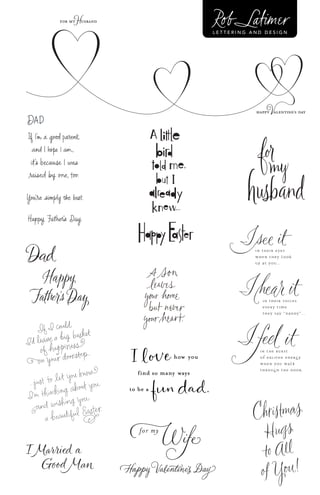 Rob Latimer
LETTERING AND DESIGN
FOR MY HUSBAND
HAPPY VALENTINE'S DAY
DAD
If I'm a good parent,
and I hope I am,
it's because I was
raised by one, too
You're simply the best.
Happy Father's Day.
A little
bird
told me,
but I
already
knew...
Happy Easter
for
my
husband
Dad
Happy
Father's Day,
A son
leaves
your home
but never
your heart.
I see it
IN THEIR EYES
WHEN THEY LOOK
UP AT YOU...
I hear it
IN THEIR VOICES
EVERY TIME
THEY SAY "DADDY"...
I feel it
IN THE BURST
OF EXCITED ENERGY
WHEN YOU WALK
THROUGH THE DOOR
If I could,
I'd leave a big basket
of happiness
on your doorstep.
just to let you know
I'm thinking about you
and wishing you
a beautiful Easter
I love how you
find so many ways
to be a fun dad.
for my Wife
Happy Valentine's Day
I Married a
Good Man
Christmas
Hugs
to All
of You!